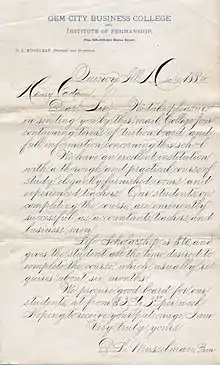 GEM CITY BUSINESS COLLEGE
AND
INSTITUTE OF PENMANSHIP,
D. L. MUSSELMAN, Principal and Proprietor.
Quincy, Ill.
Dear Sir: We take pleasure
in sending you by this mail College Jour
containing terms of tuition board, and
full information concerning this school.
We have an excellent institution
with a thorough and practical course of
study, elegantly furnished rooms and
experienced teachers. Our students on
completing the course, are eminently
successful as accountants, teachers and
business men.
Life Scholarship is $40 and
gives the student all the time desired to
complete the course which usually re
quires about six months.
We procure good board for our
students, at from $2.50 to $3 per week
Hoping to receive your patronage I am
Very truly yours
D. L. Musselman, Prin